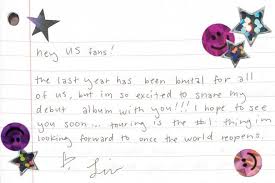 hey US fans!
the last year has been brutal for all
of us, but im so excited to share my
debut album with you!!! I hope to see
you soon... touring is the #1 thing im
looking forward to once the world reopens.
Liv